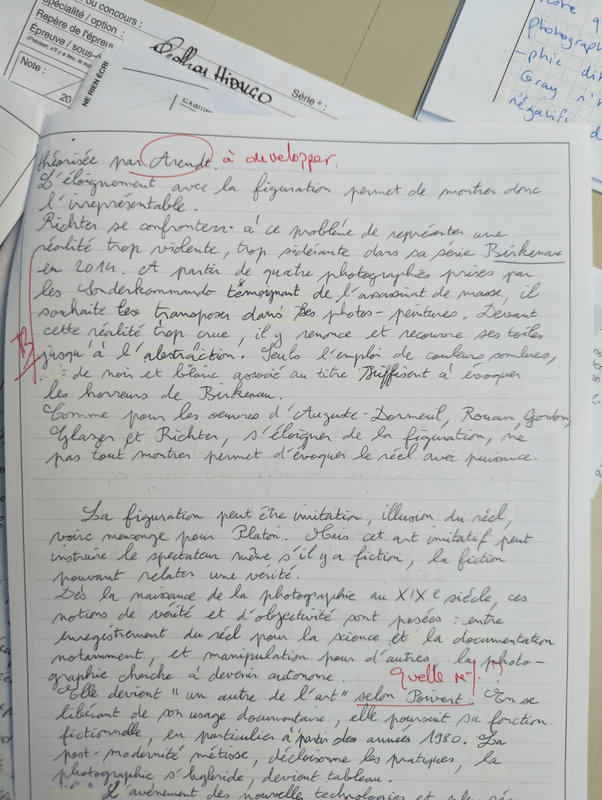 ou concours :
Spécialité / option :
Repère de l'épreuve
Épreuve / sous-
Note :
20
NE RIEN ÉCRI
HIDALGO
Série * :
photograph
-phie di
Gray n'
négatifs
théorisée par Arendt. à developper.
L'éloignement avec la figuration permet de montrer donc
l'irreprésentable.
Richter se confrontera à ce problème de représenter une
réalité trop violente, trop sidérante dans sa série Birkenau
en 2014. A partir de quatre photographies prises par
les Sonderkommando témoignant de l'assassinat de masse, il
souhaite les transposer dans ses photos-peintures. Devant
cette réalité trop crue, il y renonce et recouvre ses toiles
jusqu'à l'abstraction. Seuls l'emploi de couleurs sombres,
TB
de noir et blanc associé au titre suffisent à évoquer
les horreurs de Birkenau.
Comme pour les oeuvres d'Auguste-Dormeuil, Rouan, Gordon,
Glazer et Richter, s'éloigner de la figuration, ne
pas tout montrer permet d'évoquer le réel avec puissance.
La figuration peut être imitation, illusion du réel,
voire mensonge pour Platon. Mais cet art imitatif peut
instruire le spectateur même s'il y a fiction, la fiction
pouvant relater une vérité.
Dès la naissance de la photographie au XIXe siècle, ces
notions de vérité et d'objectivité sont posées : entre
enregistrement du réel pour la science et la documentation
notamment, et manipulation pour d'autres, la photo-
graphie cherche à devenir autonome. Quelle
Elle devient "un autre de l'art" selon Poivert. En se
libérant de son usage documentaire, elle poursuit sa fonction
fictionnelle, en particulier à partir des années 1980. La
post-modernité métisse, décloisonne les pratiques, la
photographie s'hybride, devient tableau.
l'avènement des nouvelles technologies et